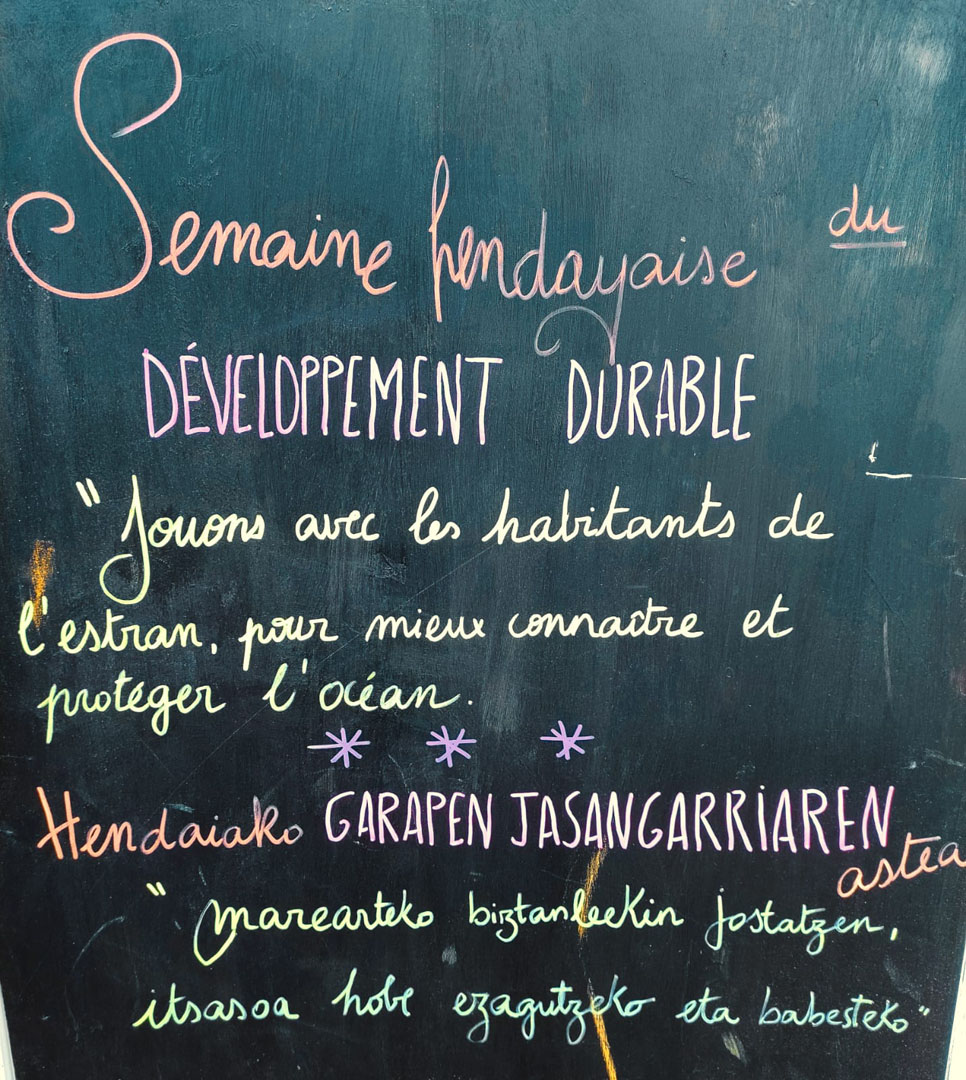 Semaine hendayaise du
DÉVELOPPEMENT DURABLE
"Jouons avec les habitants de
l'estran, pour mieux connaître et
protéger l'océan.
Hendaiako GARAPEN JASANGARRIAREN
astea
"marearteko biztanleekin jostatzen,
itsasoa hobe ezagutzeko eta babesteko"